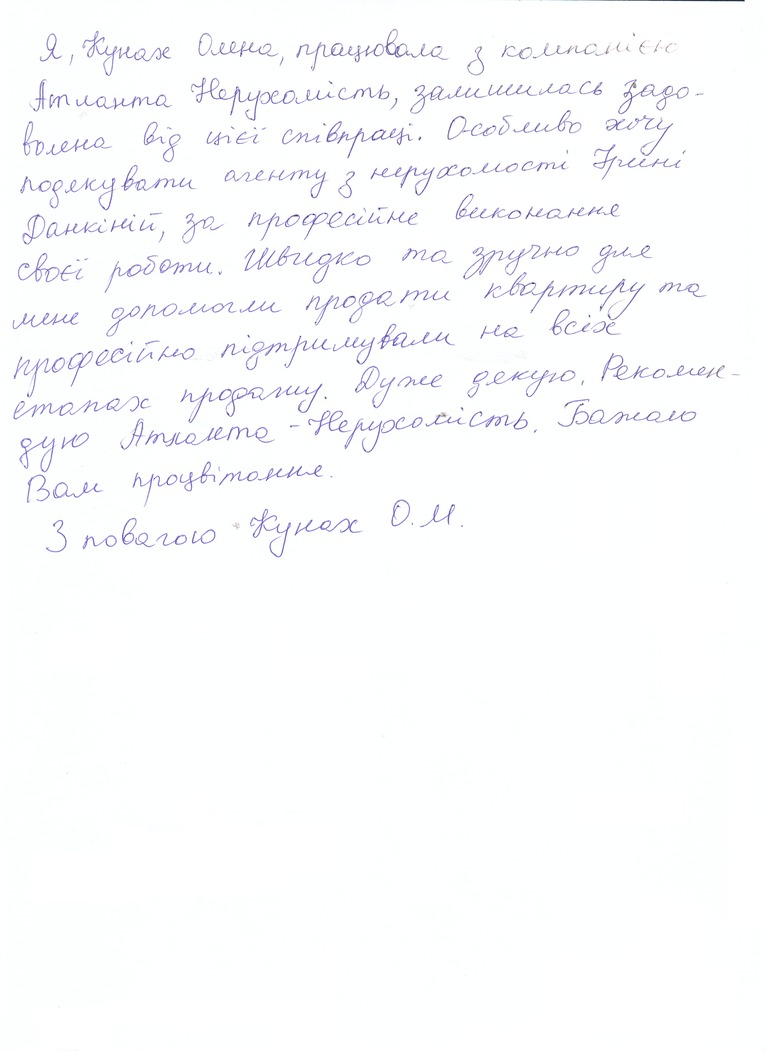 Я, Кунах Олена, працювала з компанією
Атланта Нерухомість, залишилась задо-
волена від цієї співпраці. Особливо хочу
подякувати агенту з нерухомості Ірині
Данкіній, за професійне виконання
своєї роботи. Швидко та зручно для
мене допомогли продати квартиру та
професійно підтримували на всіх
етапах продажу. Дуже дякую. Рекомен-
дую Атланта-Нерухомість. Бажаю
Вам процвітання.
З повагою Кунах О.М.